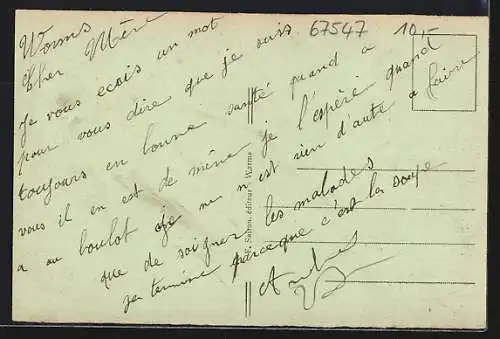 67547
10,-
Worms
Cher Mère
Je vous ecois un mot
pour vous dire que je suis
toujours en bonne santé quand a
vous il en est de même je l'espère quand
a au boulot je n'est rien d'autre a faire
que de soigner les malades
je termine parceque c'est la soupe
E. Sabron, éditeur - Worms